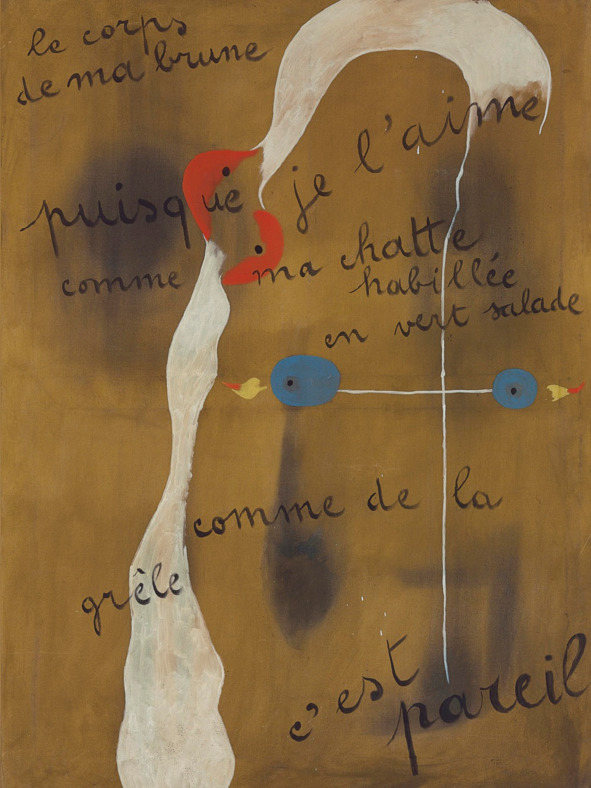 le corps
de ma brune
puisque je l'aime
comme ma chatte
habillée
en vert salade
comme de la
grêle
c'est
pareil